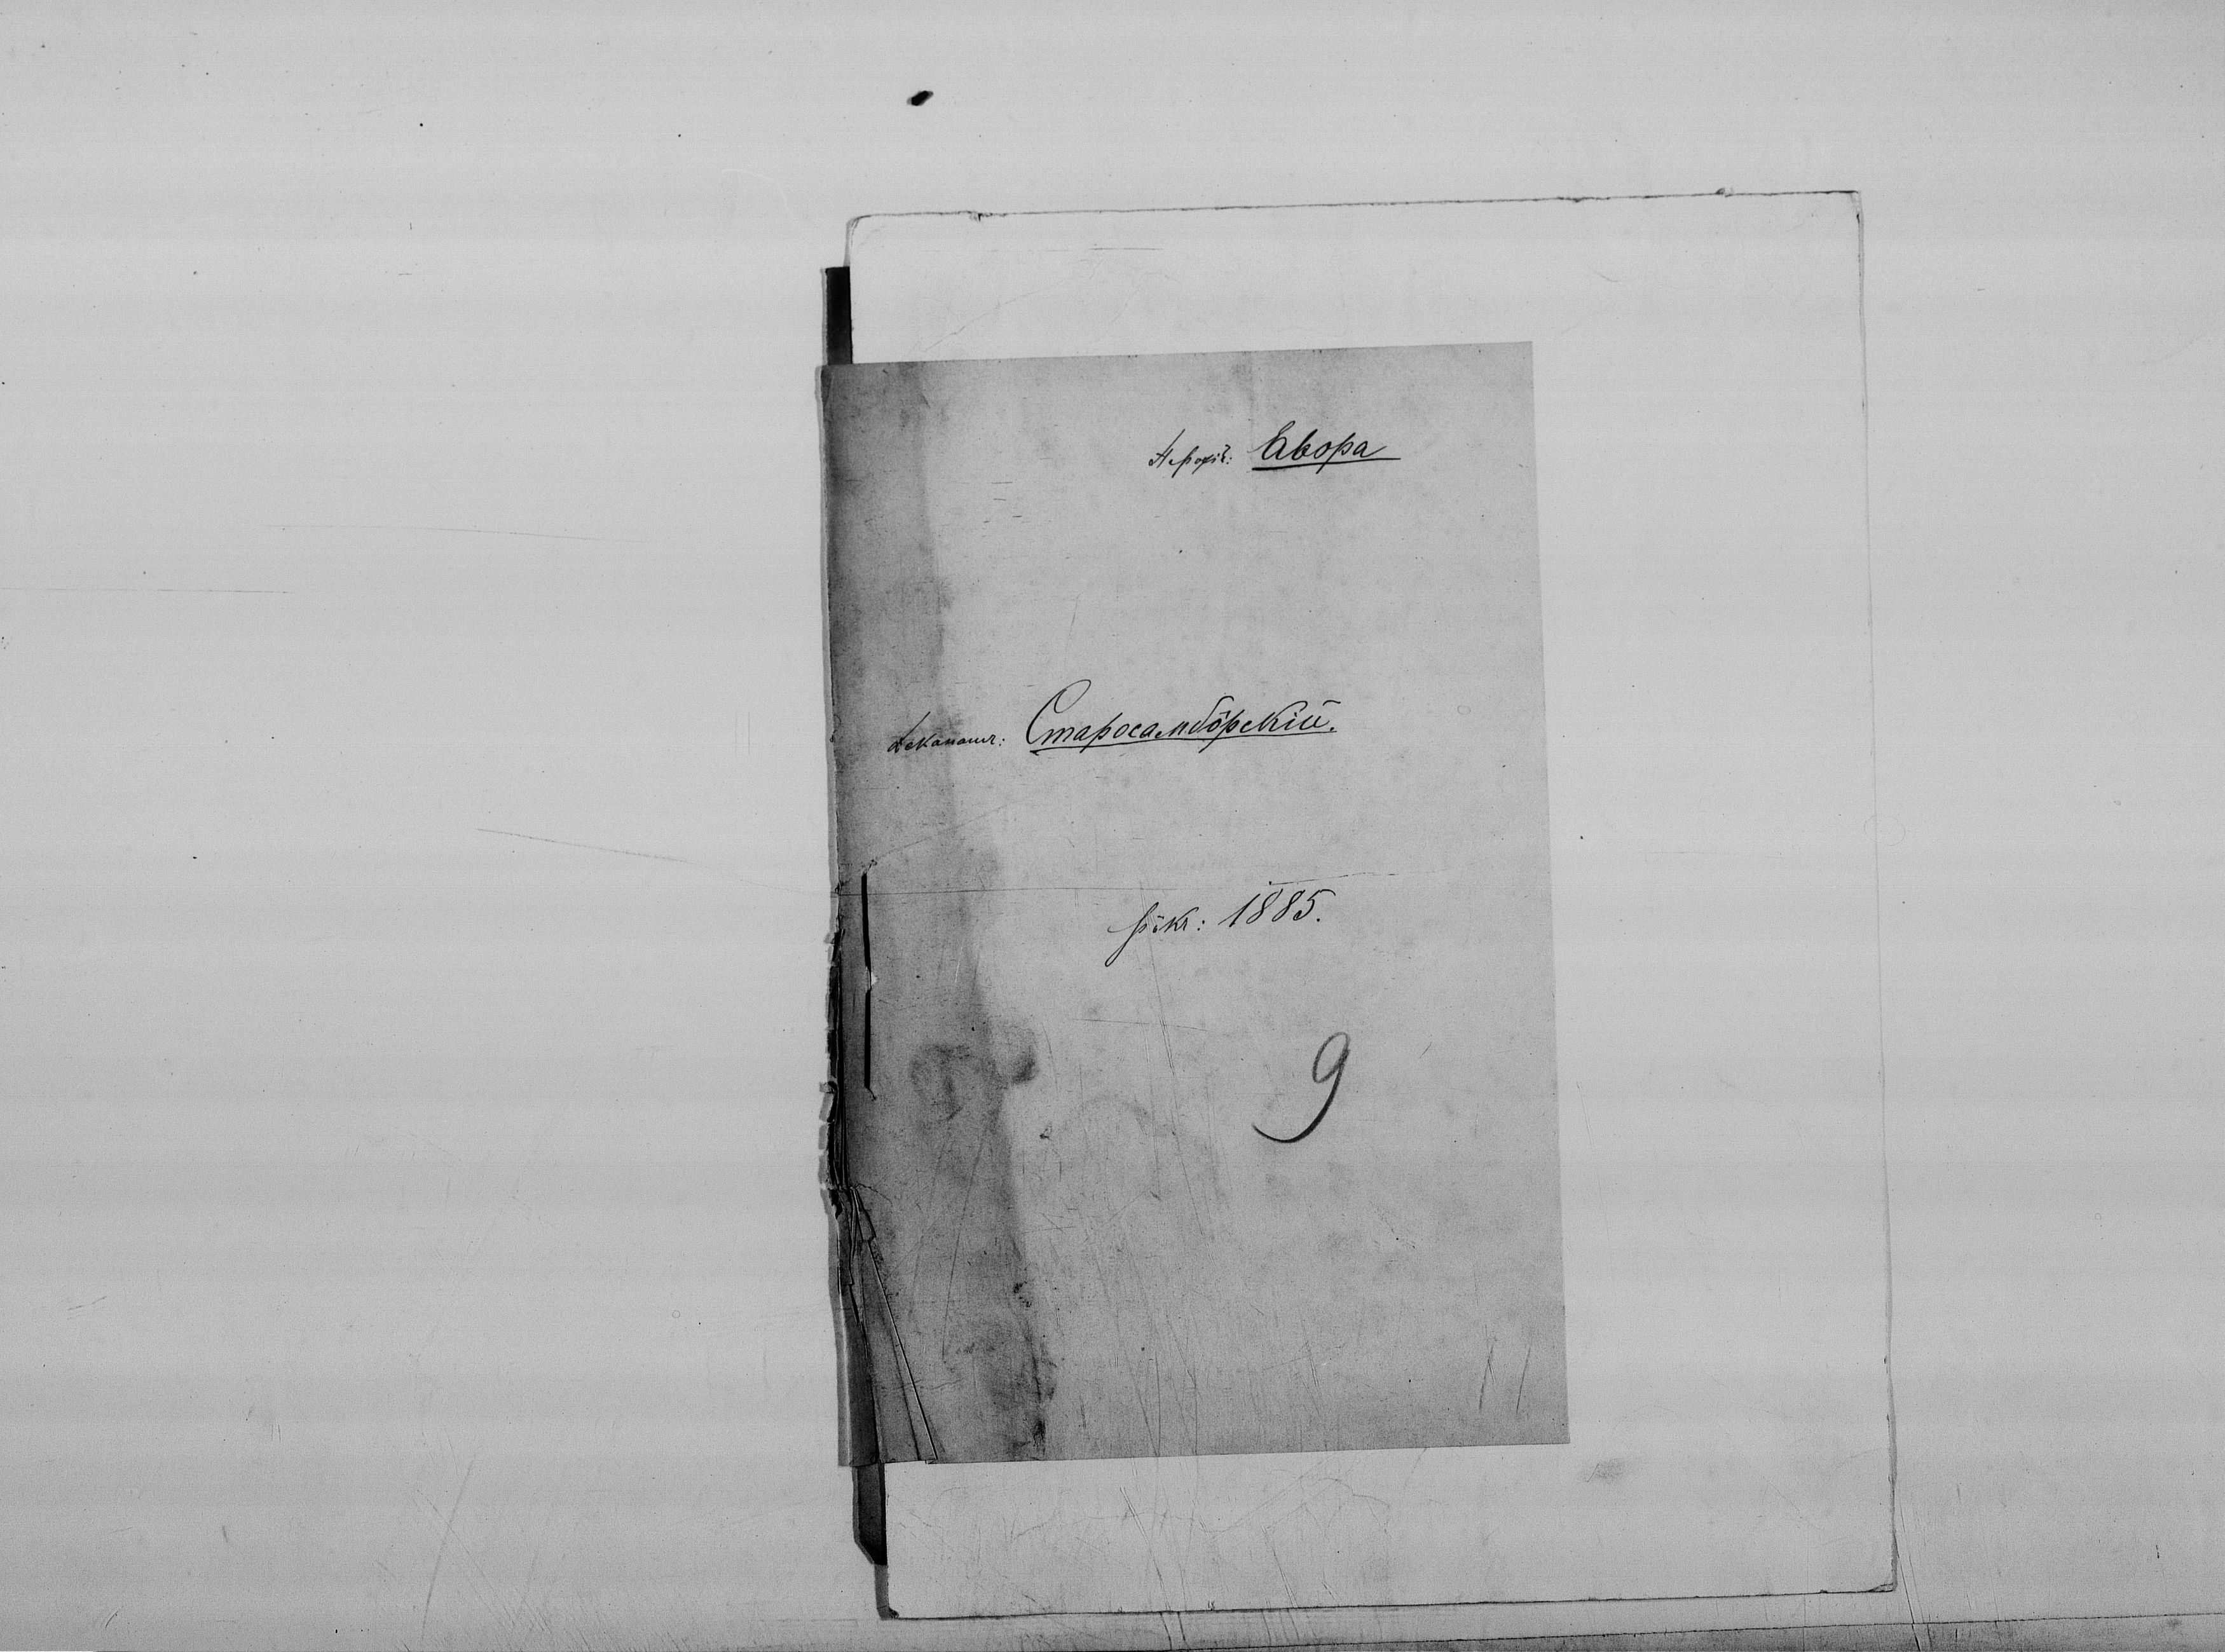 Парохія: Явора
Деканат: Старосамбôрскій.
рôкъ: 1885.
9